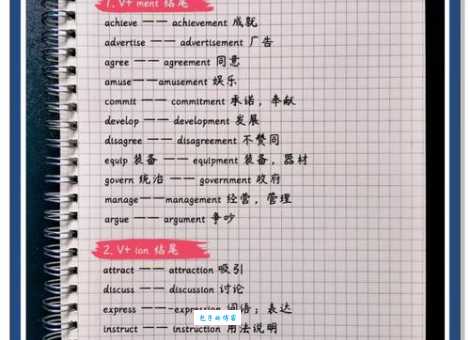 1. V+ ment 结尾
achieve —— achievement 成就
advertise —— advertisement 广告
agree —— agreement 同意
amuse——amusement 娱乐
commit —— commitment 承诺，奉献
develop —— development 发展
disagree —— disagreement 不赞同
equip 装备 —— equipment 装备，器材
govern 统治 —— government 政府
manage——management 经营，管理
argue —— argument 争吵
2. V+ ion 结尾
attract —— attraction 吸引
discuss —— discussion 讨论
express ——expression 词语；表达
instruct —— instruction 用法说明